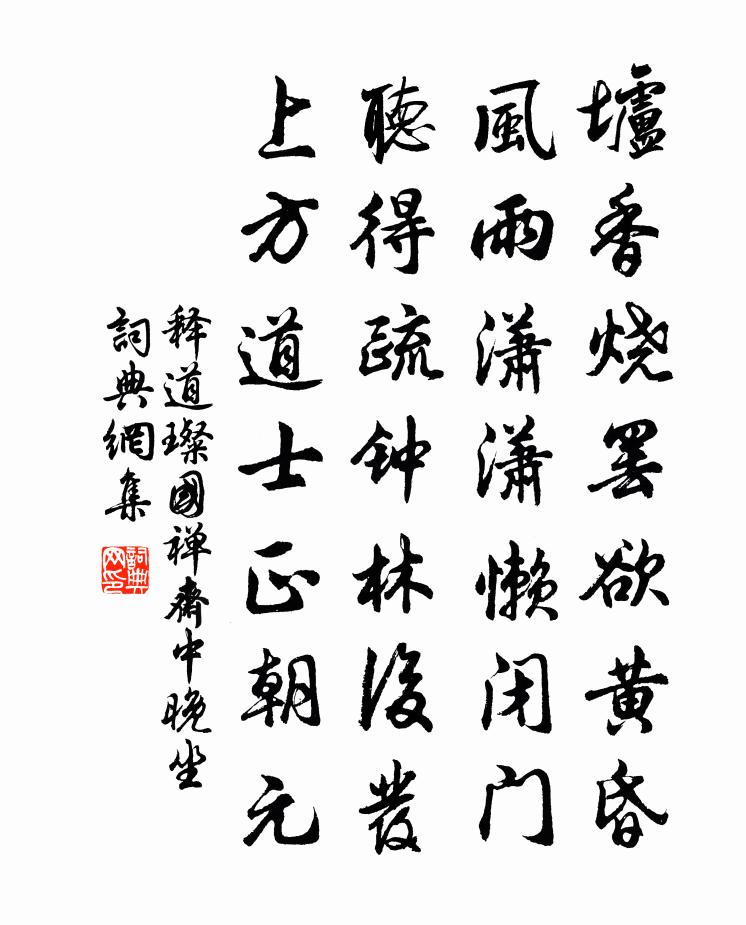 壚香烧罢欲黄昏
風雨瀟瀟懒闭门
聴得疏钟林後發
上方道士正朝元
释道璨國禅齋中晚坐
詞典網集
詞典网印